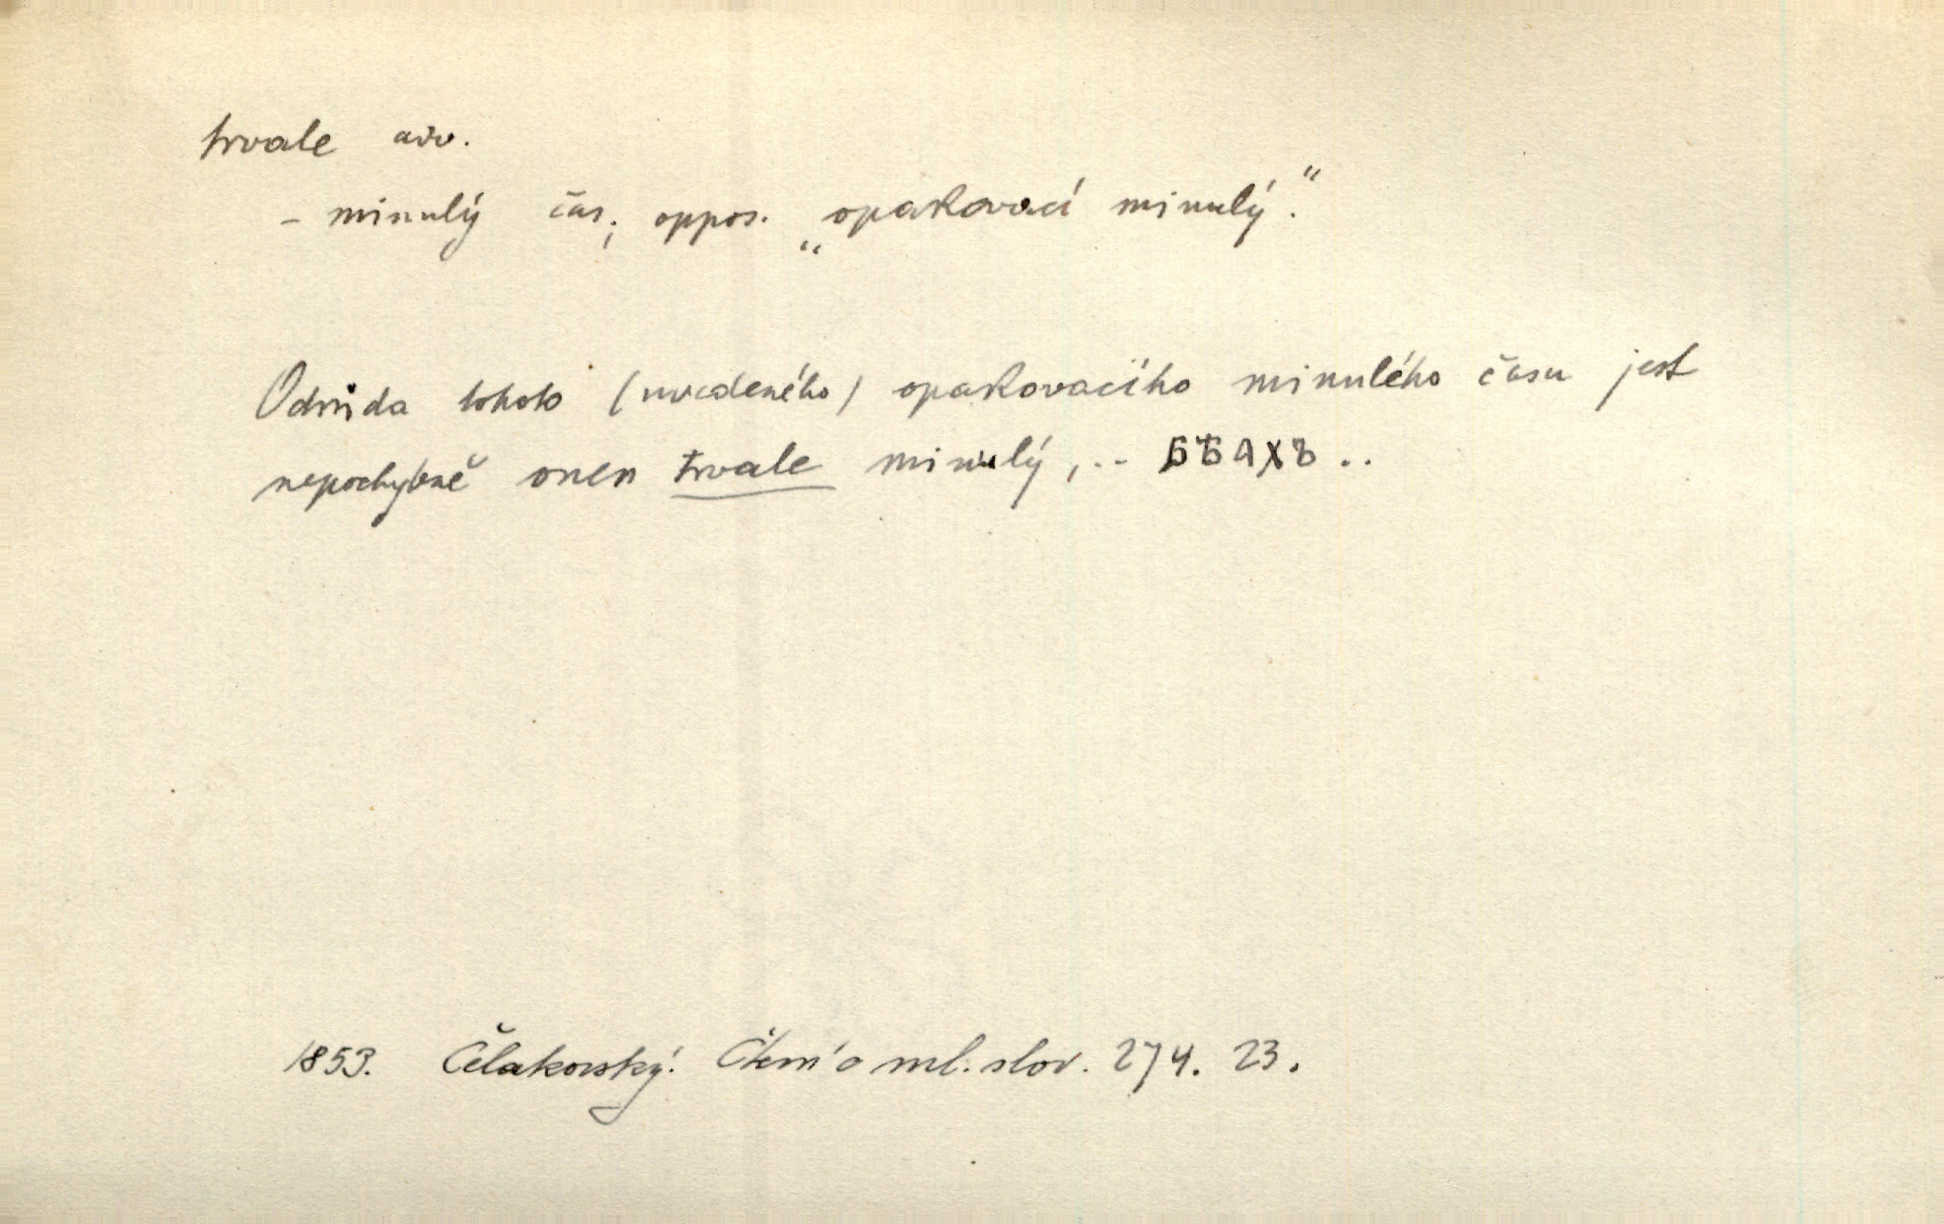 trvale adv.
- minulý čas; oppos. „opakovací minulý."
Odrůda tohoto (uvedeného) opakovacího minulého času jest
nepochybně onen trvale minulý, ..  ..
1853. Čelakovský. Čtení o ml. slov. 274. 23.